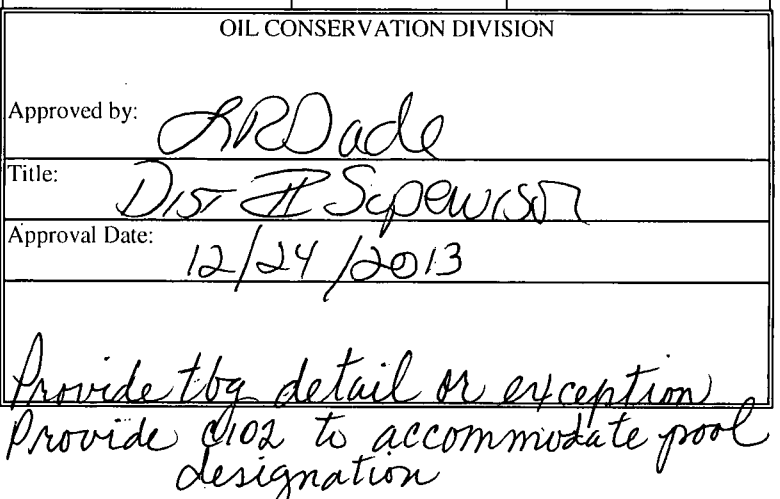 OIL CONSERVATION DIVISION
Approved by: LRDade
Title: Dist II Supervisor
Approval Date: 12/24/2013
Provide tbg detail or exception
Provide C102 to accommodate pool
designation